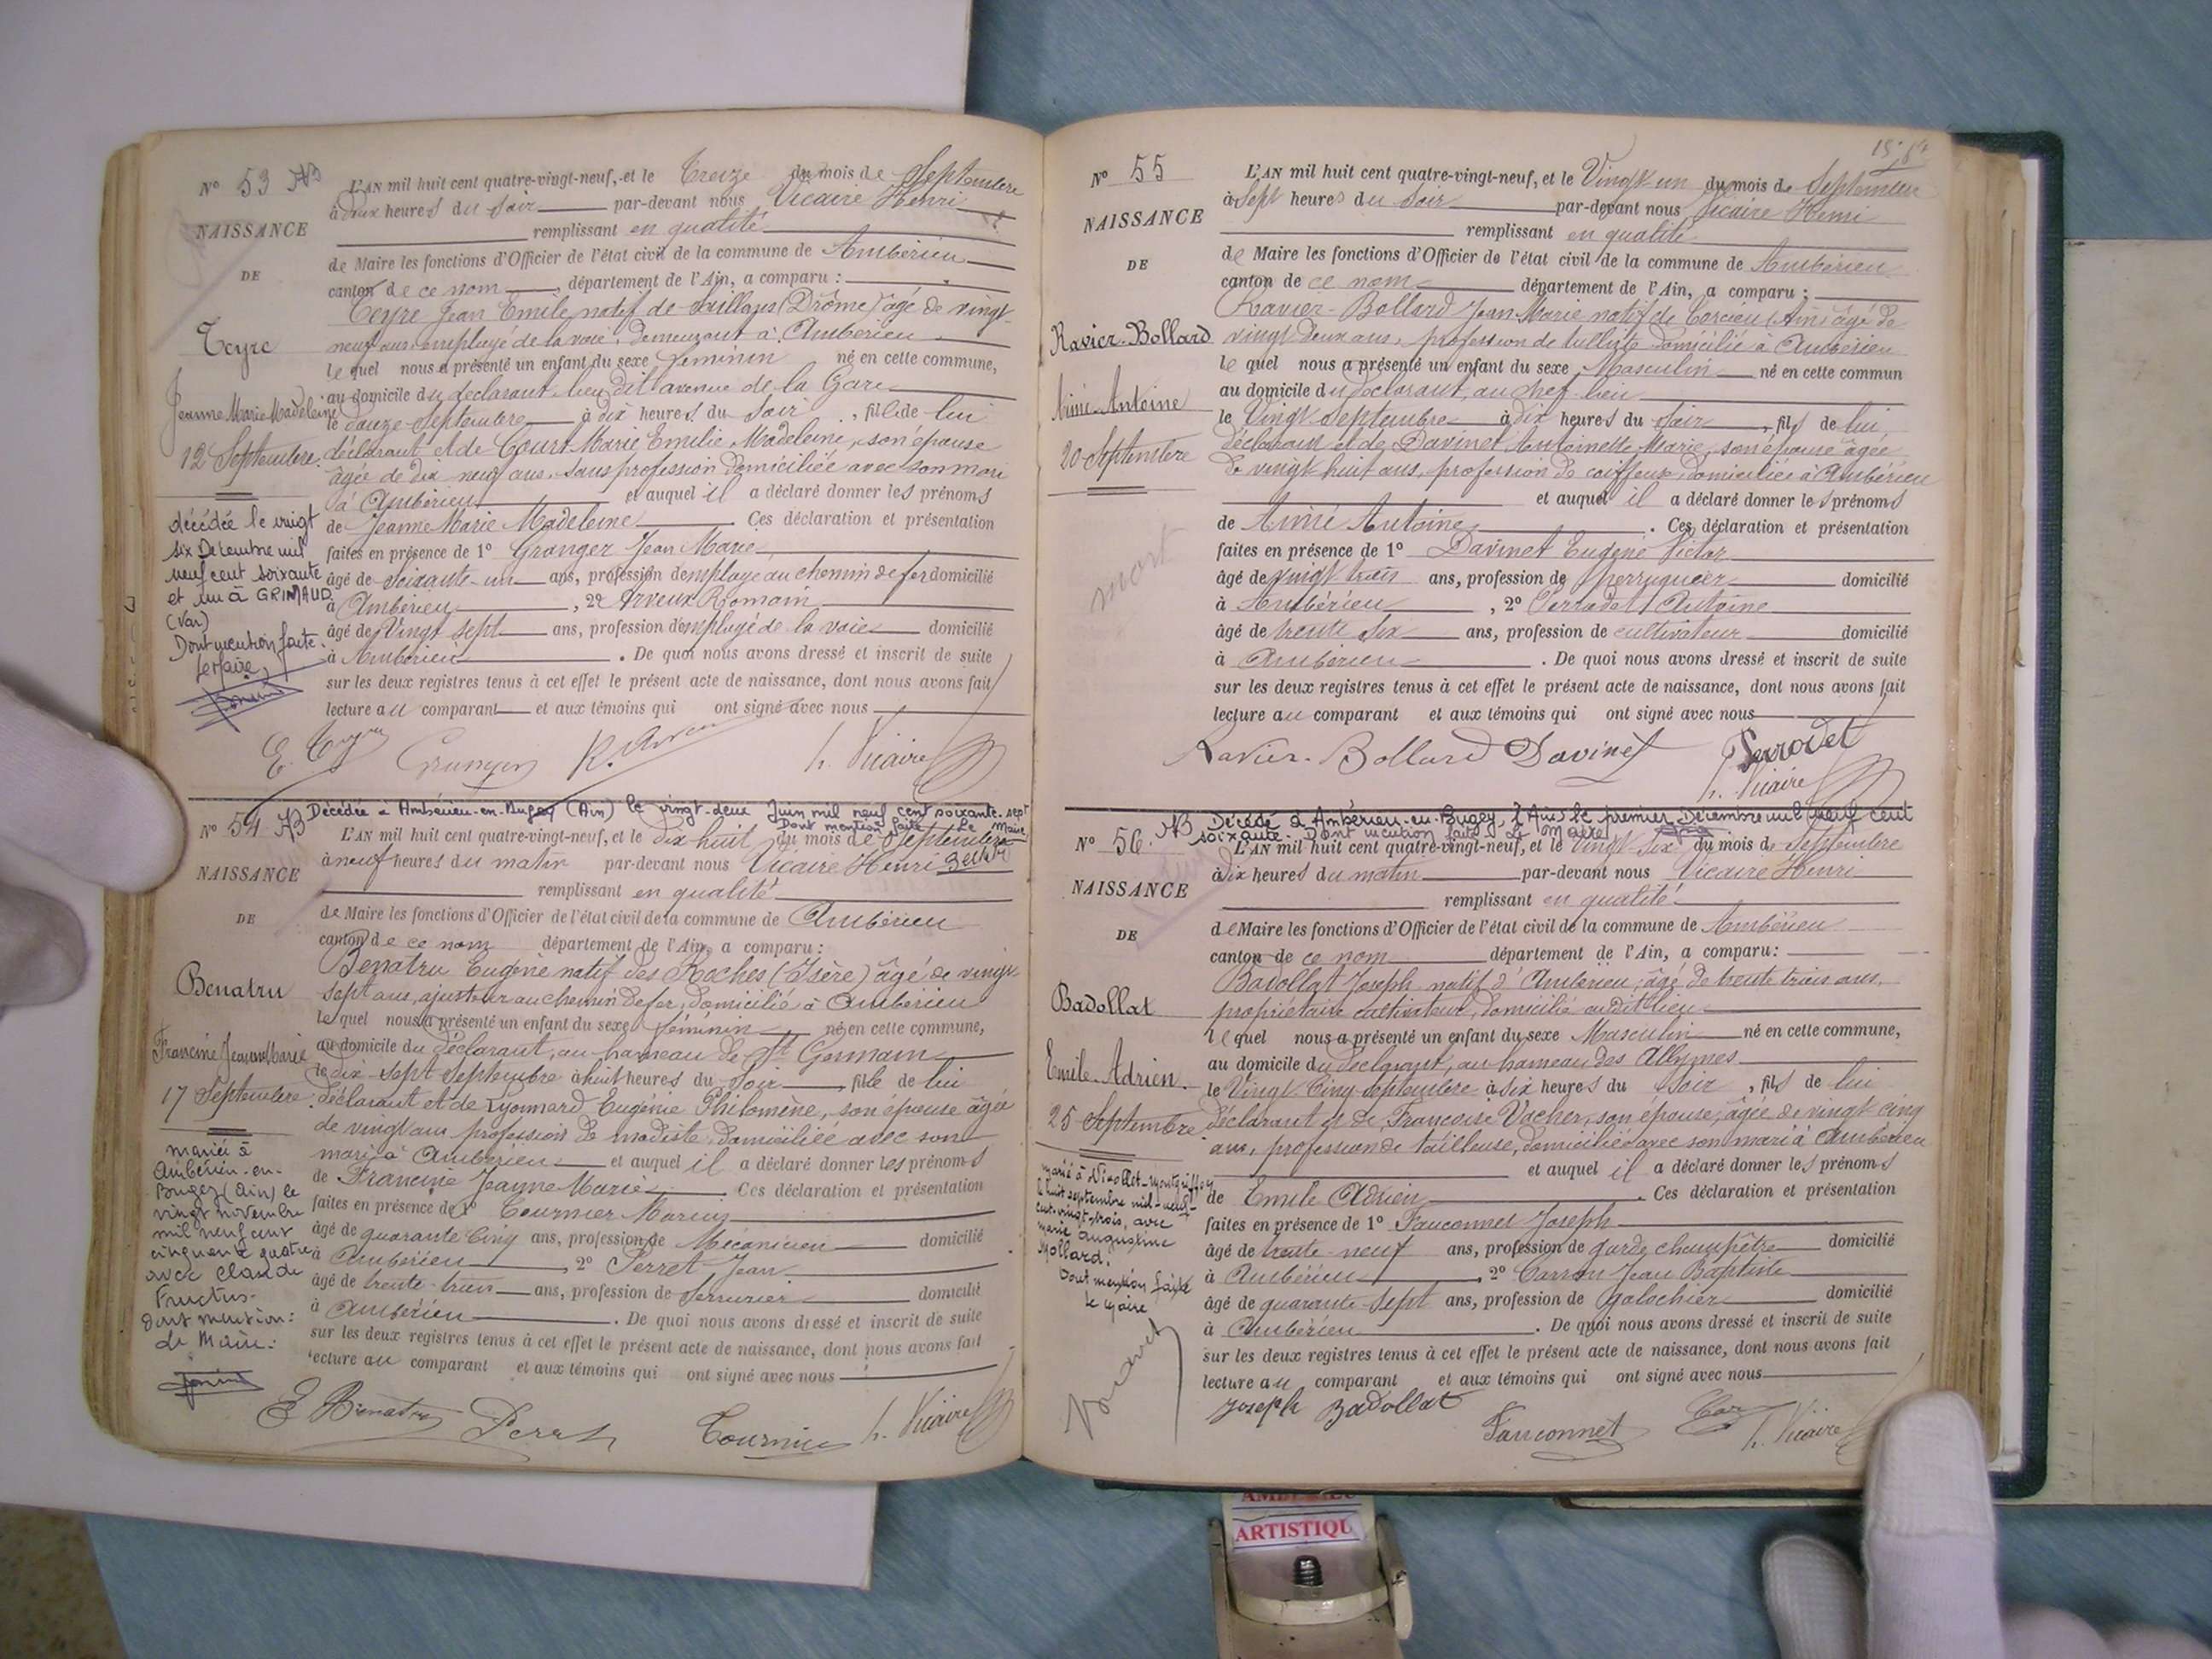 N° 53
NAISSANCE
DE
Teyre
Jeanne Marie Madeleine
12 Septembre.
décédée le vingt
six Décembre mil
neuf cent soixante
et un à GRIMAUD
(Var)
Dont mention faite.
Le Maire,
L'AN mil huit cent quatre-vingt-neuf, et le Treize du mois de Septembre
à deux heures du soir par-devant nous Vicaire Henri
remplissant en qualité
de Maire les fonctions d'Officier de l'état civil de la commune de Ambérieu
canton de ce nom, département de l'Ain, a comparu :
Teyre Jean Emile, natif de (Drôme) âgé de vingt-
neuf ans employé de la voie, demeurant à Ambérieu
le quel nous a présenté un enfant du sexe féminin né en cette commune,
au domicile du déclarant, lieu dit avenue de la Gare
le douze Septembre à dix heures du soir, fille de lui
déclarant et de Court Marie Emilie Madeleine, son épouse
âgée de dix neuf ans, sans profession domiciliée avec son mari
à Ambérieu et auquel il a déclaré donner les prénoms
de Jeanne Marie Madeleine. Ces déclaration et présentation
faites en présence de 1° Granger Jean Marie
âgé de soixante-un ans, profession d'employé au chemin de fer domicilié
à Ambérieu, 2° Arveux Romain
âgé de Vingt sept ans, profession d'employé de la voie domicilié
à Ambérieu. De quoi nous avons dressé et inscrit de suite
sur les deux registres tenus à cet effet le présent acte de naissance, dont nous avons fait
lecture au comparant et aux témoins qui ont signé avec nous
E. Teyre Granger R. Arveux h. Vicaire
Décédée à Ambérieu-en-Bugey (Ain) le vingt-deux Juin mil neuf cent soixante-sept
Dont mention faite Le Maire
N° 54
NAISSANCE
DE
Benatru
Francine Jeanne Marie
17 Septembre.
mariée à
Ambérieu-en-
Bugey (Ain) le
vingt novembre
mil neuf cent
cinquante quatre
avec Claude
Fructus.
dont mention:
Le Maire:
L'AN mil huit cent quatre-vingt-neuf, et le dix huit du mois de Septembre
à neuf heures du matin par-devant nous Vicaire Henri
remplissant en qualité
de Maire les fonctions d'Officier de l'état civil de la commune de Ambérieu
canton de ce nom département de l'Ain, a comparu :
Benatru Eugène natif des Roches (Isère) âgé de vingt-
sept ans, ajusteur au chemin de fer, domicilié à Ambérieu
le quel nous a présenté un enfant du sexe féminin né en cette commune,
au domicile du déclarant, au hameau de St Germain
le dix-sept Septembre à huit heures du soir, fille de lui
déclarant et de Lyonnard Eugénie Philomène, son épouse âgée
de vingt ans profession de modiste domiciliée avec son
mari à Ambérieu et auquel il a déclaré donner les prénoms
de Francine Jeanne Marie. Ces déclaration et présentation
faites en présence de 1° Tournier Marius
âgé de quarante cinq ans, profession de Mécanicien domicilié
à Ambérieu, 2° Perret Jean
âgé de trente-trois ans, profession de serrurier domicilié
à Ambérieu. De quoi nous avons dressé et inscrit de suite
sur les deux registres tenus à cet effet le présent acte de naissance, dont nous avons fait
lecture au comparant et aux témoins qui ont signé avec nous
E Benatru Perret Tournier h. Vicaire
N° 55
NAISSANCE
DE
Ravier-Bollard
Aimé-Antoine
20 Septembre
mort
L'AN mil huit cent quatre-vingt-neuf, et le Vingt un du mois de Septembre
à Sept heures du soir par-devant nous Vicaire Henri
remplissant en qualité
de Maire les fonctions d'Officier de l'état civil de la commune de Ambérieu
canton de ce nom département de l'Ain, a comparu :
Ravier-Bollard Jean-Marie natif de Torcieu (Ain) âgé de
vingt deux ans, profession de tulliste domicilié à Ambérieu
le quel nous a présenté un enfant du sexe Masculin né en cette commun
au domicile du déclarant, au chef-lieu
le Vingt Septembre à dix heures du soir, fils de lui
déclarant et de Davinet Antoinette Marie, son épouse âgée
de vingt huit ans, profession de coiffeuse domiciliée à Ambérieu
et auquel il a déclaré donner les prénoms
de Aimé Antoine. Ces déclaration et présentation
faites en présence de 1° Davinet Eugène Victor
âgé de vingt trois ans, profession de perruquier domicilié
à Ambérieu, 2° Perrodet Antoine
âgé de trente six ans, profession de cultivateur domicilié
à Ambérieu. De quoi nous avons dressé et inscrit de suite
sur les deux registres tenus à cet effet le présent acte de naissance, dont nous avons fait
lecture au comparant et aux témoins qui ont signé avec nous
Ravier-Bollard Davinet Perrodet
h. Vicaire
Décédé à Ambérieu-en-Bugey, l'Ain, le premier Décembre mil neuf cent
soixante. Dont mention faite Le Maire
N° 56.
NAISSANCE
DE
Badollat
Emile-Adrien.
25 Septembre
marié à
le huit septembre mil-neuf-
cent-vingt-trois, avec
Marie Augustine
Mollard.
Dont mention faite
Le Maire
L'AN mil huit cent quatre-vingt-neuf, et le Vingt six du mois de Septembre
à dix heures du matin par-devant nous Vicaire Henri
remplissant en qualité
de Maire les fonctions d'Officier de l'état civil de la commune de Ambérieu
canton de ce nom département de l'Ain, a comparu:
Badollat Joseph natif d'Ambérieu, âgé de trente trois ans,
propriétaire cultivateur, domicilié au dit lieu
lequel nous a présenté un enfant du sexe Masculin né en cette commune,
au domicile du déclarant, au hameau des Allymes
le Vingt Cinq Septembre à six heures du soir, fils de lui
déclarant et de Françoise Vacher, son épouse, âgée de vingt cinq
ans, profession de tailleuse, domiciliée avec son mari à Ambérieu
et auquel il a déclaré donner les prénoms
de Emile Adrien. Ces déclaration et présentation
faites en présence de 1° Fauconnet Joseph
âgé de trente-neuf ans, profession de garde champêtre domicilié
à Ambérieu, 2° Carron Jean Baptiste
âgé de quarante-sept ans, profession de galochier domicilié
à Ambérieu. De quoi nous avons dressé et inscrit de suite
sur les deux registres tenus à cet effet le présent acte de naissance, dont nous avons fait
lecture au comparant et aux témoins qui ont signé avec nous
Joseph Badollat Fauconnet h. Vicaire
ARTISTIQU